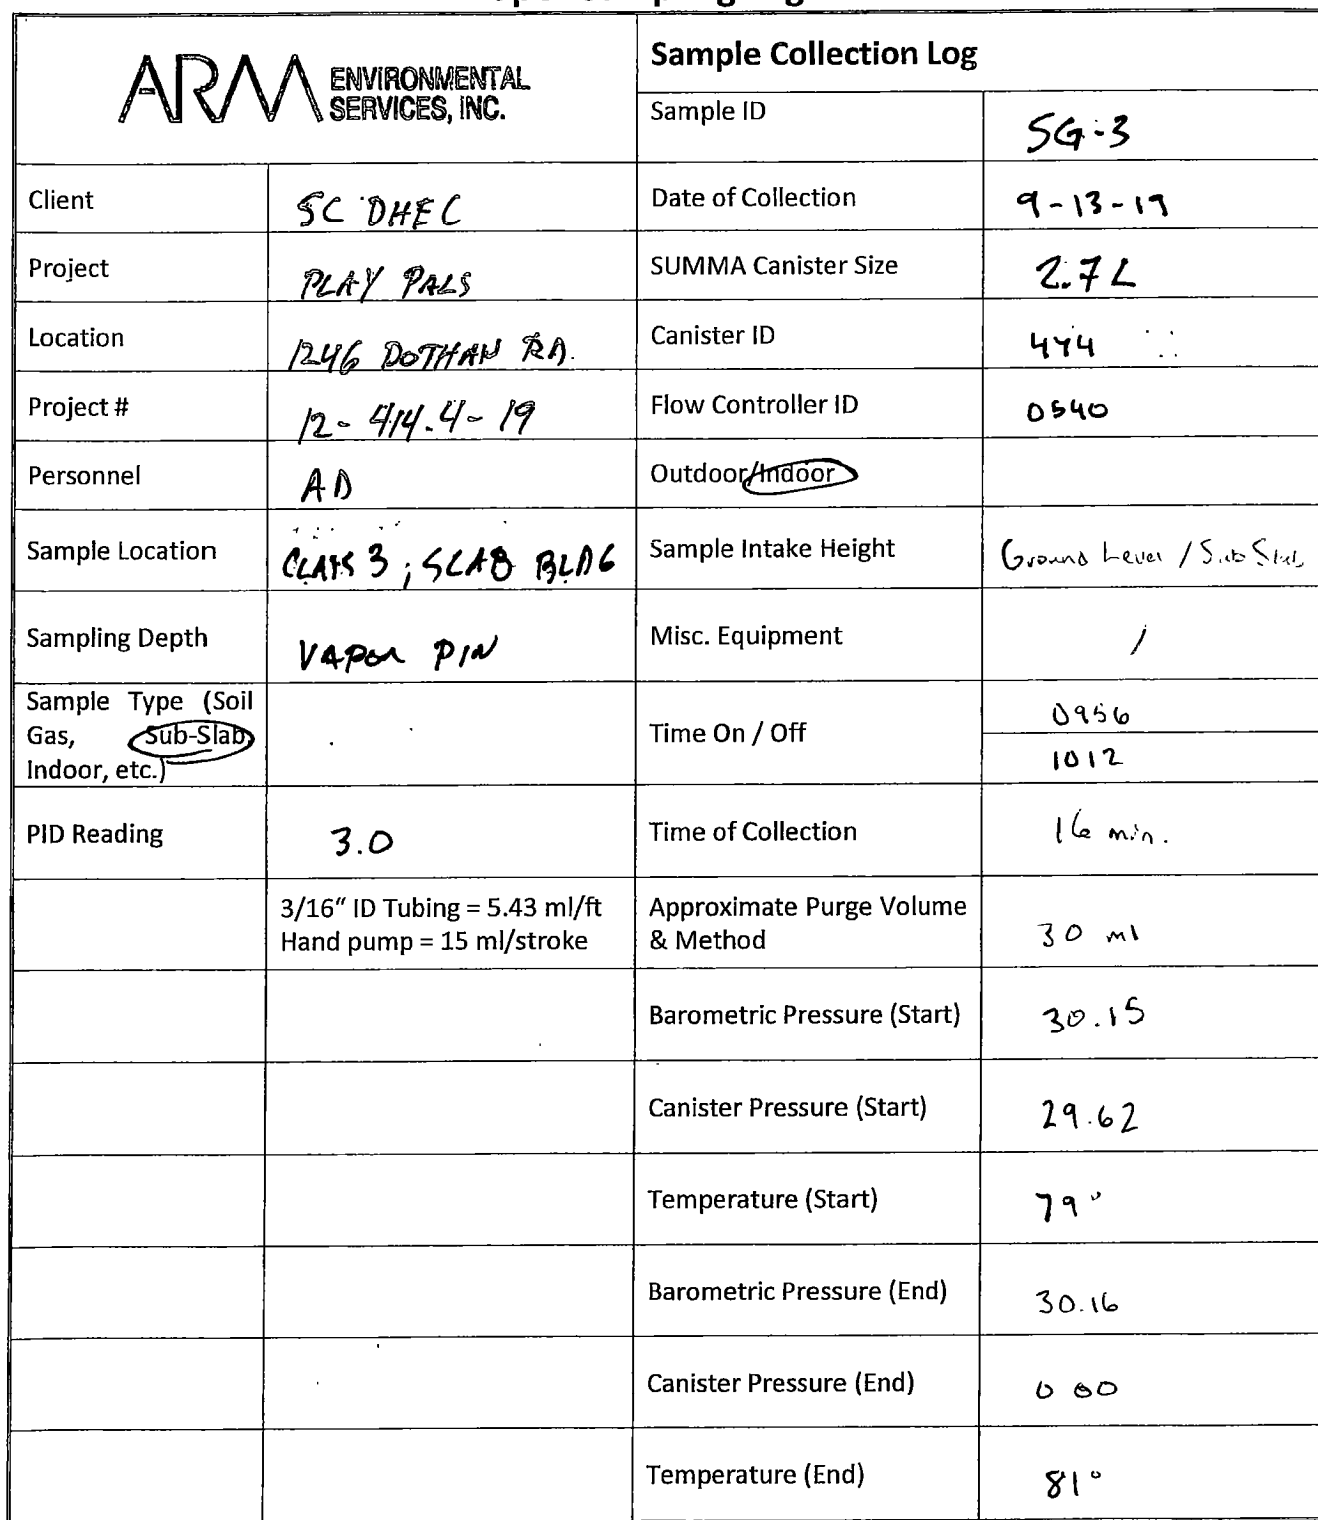 ARM ENVIRONMENTAL
SERVICES, INC.
Sample Collection Log
Sample ID SG-3
Client SC DHEC
Date of Collection 9-13-19
Project PLAY PALS
SUMMA Canister Size 2.7 L
Location 1246 DOTHAN RD.
Canister ID 444
Project # 12-414.4-19
Flow Controller ID 0540
Personnel AD
Outdoor/Indoor
Sample Location CLASS 3; SLAB BLDG
Sample Intake Height Ground Level / Sub Slab
Sampling Depth VAPOR PIN
Misc. Equipment /
Sample Type (Soil
Gas, Sub-Slab
Indoor, etc.)
Time On / Off 0956
1012
PID Reading 3.0
Time of Collection 16 min.
3/16" ID Tubing = 5.43 ml/ft
Hand pump = 15 ml/stroke
Approximate Purge Volume
& Method 30 ml
Barometric Pressure (Start) 30.15
Canister Pressure (Start) 29.62
Temperature (Start) 79°
Barometric Pressure (End) 30.16
Canister Pressure (End) 0 00
Temperature (End) 81°